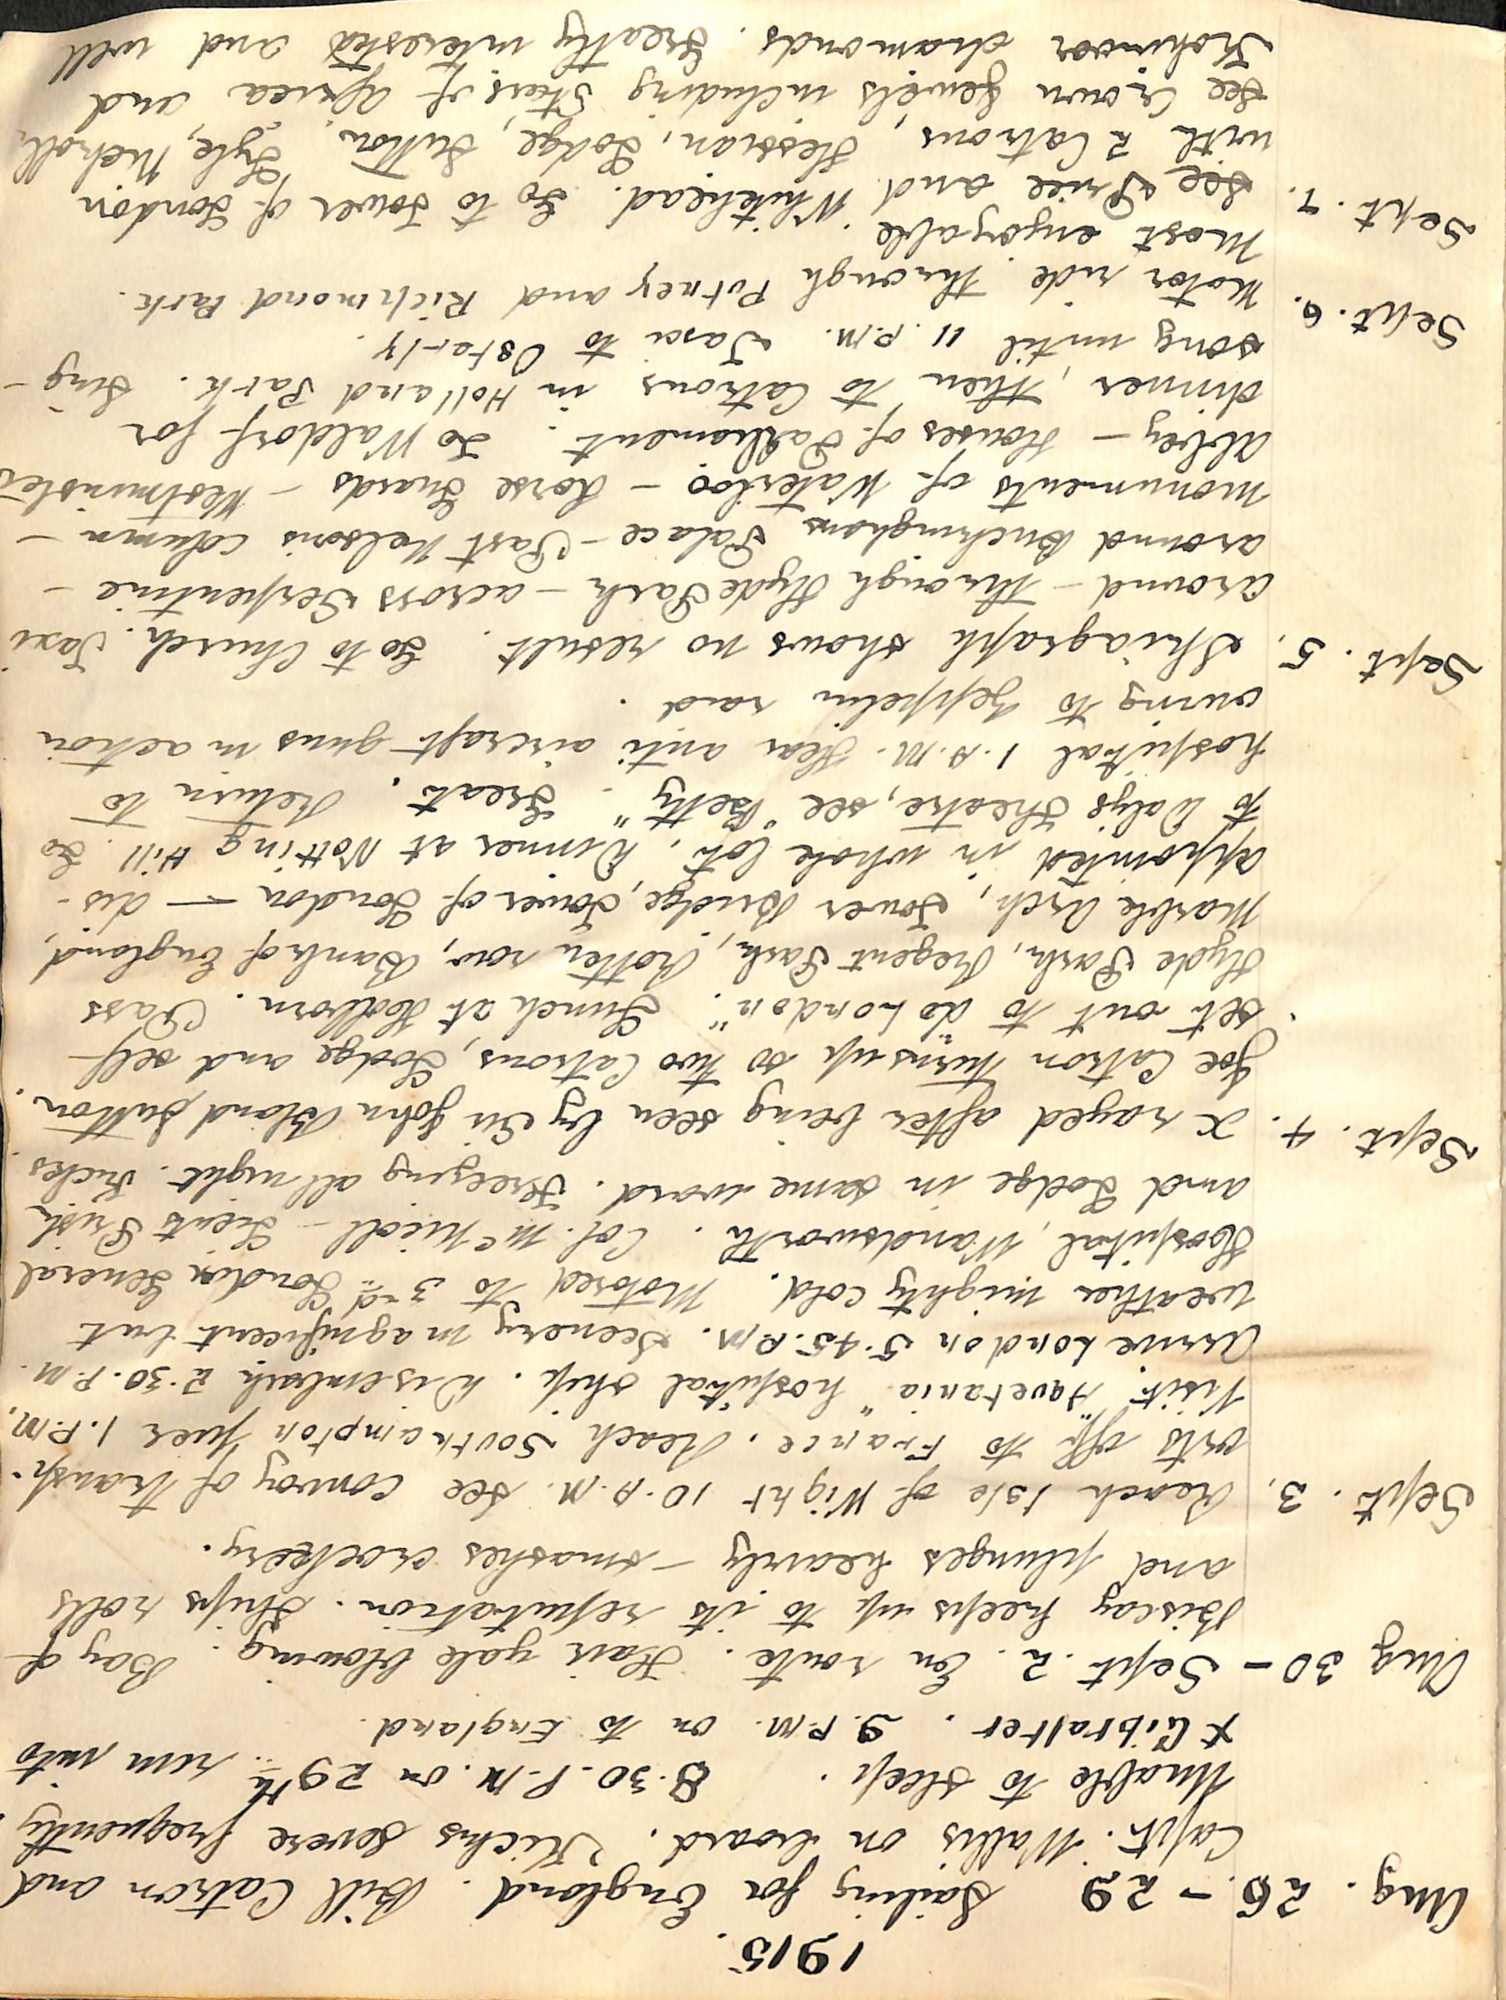 1915.
Aug. 26 - 29 Sailing for England. Bill Catron and
Capt. Wallis on board. Kicks severe frequently
Unable to sleep. 8.30. P.M. on 29th run into
x Gibralter. 9 P.M. on to England.
Aug 30 - Sept. 2. En route. Fair gale blowing. Bay of
Biscay keeps up to its reputation. Ships rolls
and plunges heavily - smashes crockery.
Sept. 3. Reach Isle of Wight 10. A.M. see convoy of transp-
orts off to France. Reach Southampton pier 1. P.M.
Visit "Aquetania" hospital ship. Disembark 2.30. P.M.
Arrive London 5.45. P.M. Scenery magnificent but
weather mighty cold. Motored to 3rd London General
Hospital, Wandsworth. Col. McNicoll - Lieuts
and Lodge in same ward. Freezing all night. Kicks
Sept. 4. X rayed after being seen by Sir John Bland Sutton.
Joe Catron turns up so two Catrons, Lodge and self
set out to "do London". Lunch at Holborn. Pass
Hyde Park, Regent Park, Rotten row, Bank of England,
Marble Arch, Tower Bridge, Tower of London — dis-
appointed in whole lot. Dinner at Notting Hill. Go
to Dalys theatre, see "Betty". Great. Return to
hospital 1. A.M. Hear anti aircraft guns in action
owing to Zeppelin raid.
Sept. 5. Skiagraph shows no result. Go to Church. Taxi
around - through Hyde Park - across Serpentine -
around Buckingham Palace - Past Nelsons column -
monuments of Waterloo - Horse Guards - Westminster
Abbey - Houses of Parliament. To Waldorf for
dinner, then to Catrons in Holland Park. Sing-
song until 11. P.M. Taxi to Osterly.
Sept. 6. Motor ride through Putney and Richmond Park.
Most enjoyable
Sept. 7. See Price and Whitehead. Go to Tower of London
with 2 Catrons, Hessian, Lodge, Sutton, Lyle, Nicholl
see Crown Jewels including Star of Africa and
Kohinoor diamonds. Greatly interested and well